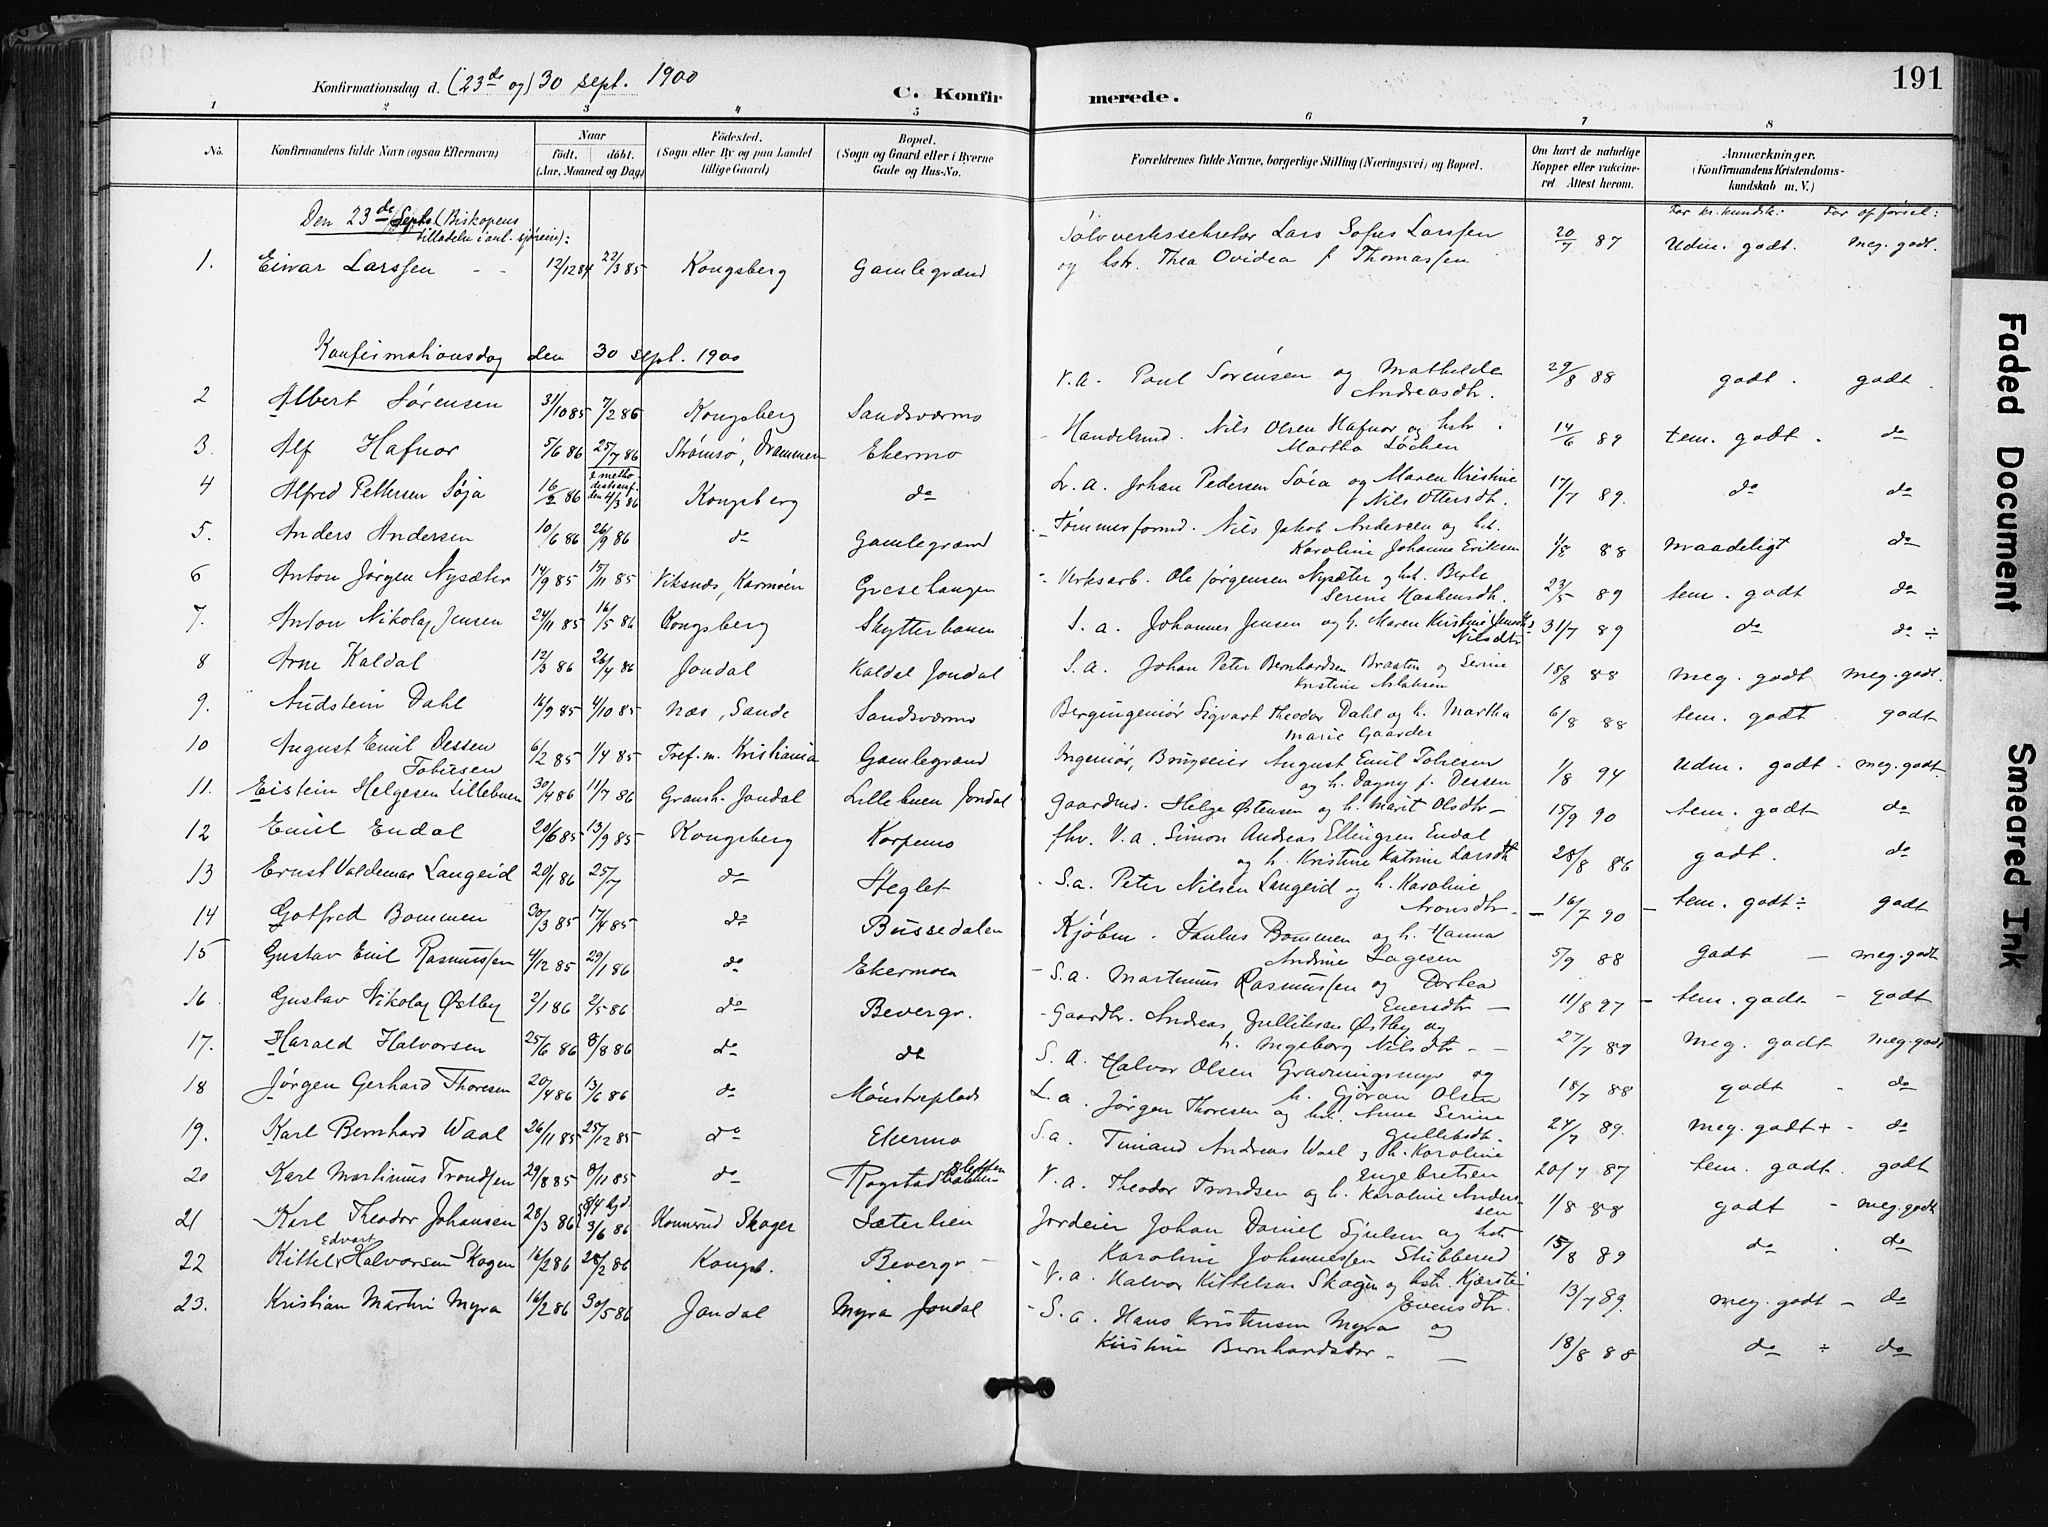 191
Konfirmationsdag d. (23de og) 30 sept. 1900
C. Konfirmerede.
1 2 3 4 5 6 7 8
No. Konfirmandens fulde Navn (ogsaa Efternavn) Naar født. døbt. (Aar, Maaned og Dag) Fødested. (Sogn eller By og paa Landet tillige Gaard) Bopæl. (Sogn og Gaard eller i Byerne Gade og Hus-No. Forældrenes fulde Navne, borgerlige Stilling (Næringsvei) og Bopæl. Om havt de naturlige Kopper eller vakcineret Attest herom. Anmærkninger. (Konfirmandens Kristendomskundskab m. V.)
Den 23de Septbr (Biskopens tilladelse i anl. sjøreise):
1. Eivar Larssen - - 12/12 84 22/3 85 Kongsberg Gamlegrænd Sølvverkssekretær Lars Sofus Larssen og hstr. Thea Ovidea f Thomassen 20/7 87 Udm. godt. Meg. godt.
Konfirmationsdag den 30 sept. 1900
2 Albert Sørensen 31/10 85 7/2 86 Kongsberg Sandsværmo V.a. Poul Sørensen og Mathilde Andreasdtr. 29/8 88 godt. godt.
3. Alf Hafnor 5/6 86 25/7 86 Strømsø, Drammen Ekermo Handelsmd. Nils Olsen Hafnor og hstr. Martha Løchen 14/6 89 tem. godt. do
4 Alfred Pettersen Søja 16/2 86 4/3 86 Kongsberg do Lr. a. Johan Pedersen Søia og Maren Kristine f Nils Ottersdtr. 17/7 89. do do
5. Anders Andersen 10/6 86 26/9 86 do Gamlegrænd Tømmerformd. Nils Jakob Andersen og hst. Karoline Johanne Eriksen 1/8 88 maadeligt do
6 Anton Jørgen Nysæter 14/9 85 15/11 85 Viksnæs, Karmøen Gresehaugen Verksarb. Ole Jørgensen Nysæter og hst. Berte Serine Haakensdtr. 23/5 89 tem. godt do
7. Anton Nikolay Jensen 24/11 85 16/5 86 Kongsberg Skytterbanen S. a. Johannes Jensen og h. Maren Kristine Nilsdtr 31/7 89 do do ÷
8 Arne Kaldal 12/3 86 26/4 86 Jondal Kaldal Jondal S. a. Johan Peter Bernhardsen Braaten og Serine Kristine Aslaksen 18/8 88 meg. godt meg. godt.
9. Audstein Dahl 16/9 85 4/10 85 Næs, Sande Sandsværmo Bergingeniør Sigvart Theodor Dahl og h. Martha Marie Gaarder 6/8 88 tem. godt. godt
10 August Emil Dessen Tobiesen 6/2 85 1/4 85 Tref. m. Kristiania Gamlegrænd Ingeniør, Brugseier August Emil Tobiesen og h. Dagny f. Dessen 1/8 94 Udm. godt - meg. godt.
11. Eistein Helgesen Lillebuen 30/4 86 11/7 86 Gransh. Jondal Lillebuen Jondal Gaardmd. Helge Østensen og h. Marit Olsdtr - 15/9 90 tem. godt do
12 Emil Endal 20/6 85 13/9 85 Kongsberg Korpemo fhv. V.a. Simon Andreas Ellingsen Endal og h. Kristine Katrine Larsdtr 28/8 86 godt. do
13 Ernst Valdemar Langeid 20/1 86 25/7 do Heglet S.a. Peter Nilsen Langeid og h. Karoline Aronsdtr 16/7 90 tem. godt ÷ godt
14 Gotfred Bommen 30/3 85 17/4 85 do Bussedalen Kjøbm. Paulus Bommen og h. Hanna Andrine Lagesen 5/9 88 godt - meg. godt
15 Gustav Emil Rasmussen 4/12 85 29/1 86 do Ekermoen S.a. Martinus Rasmussen og Dortea Enersdtr - 11/8 97 tem. godt - godt
16 Gustav Nikolay Østby 2/1 86 2/5 86 do Bevergr. Gaardbr. Andreas Julliksen Østby og h. Ingeborg Nilsdtr - - 27/7 89 meg. godt meg. godt
17. Harald Halvorsen 25/6 86 8/8 86 do do S. a. Halvor Olsen Gravningsmyr og h. Gjøran Olsen 18/7 88 godt - do
18 Jørgen Gerhard Thoresen 20/4 86 13/6 86 do Mønstreplads L. a. Jørgen Thoresen og hst. Anne Serine Gulliksdtr. 24/7 89. meg. godt + - do
19. Karl Bernhard Waal 26/11 85 25/12 85 do Ekermo S.a. Andreas Waal og h. Karoline Engebretsen 20/7 87 tem. godt. godt
20 Karl Martinus Trondsen 29/8 85 8/11 85 do Rogstad V. a. Theodor Trondsen og h. Karoline Andersen 1/8 88 godt - meg. godt
21 Karl Theodor Johansen 28/3 86 3/6 86 Konnerud Skoger Sæterlien Jordeier Johan Daniel Sjulsen og hstr Karoline Johannessen Stubberud 15/8 89 do . do
22 Kittel Edvart Halvorsen Skogen 16/2 86 28/2 86 Kongsb. Bevergr - V.a. Halvor Kittelsen Skogen og hstr. Kjærsti Evensdtr. 13/7 89. meg. godt - do
23. Kristian Martin Myra 16/2 86 30/5 86 Jondal Myra Jondal S.a. Hans Kristensen Myra og Kristine Bernhardsdtr. - - 18/8 88 do ÷ do
Faded Document
Smeared Ink